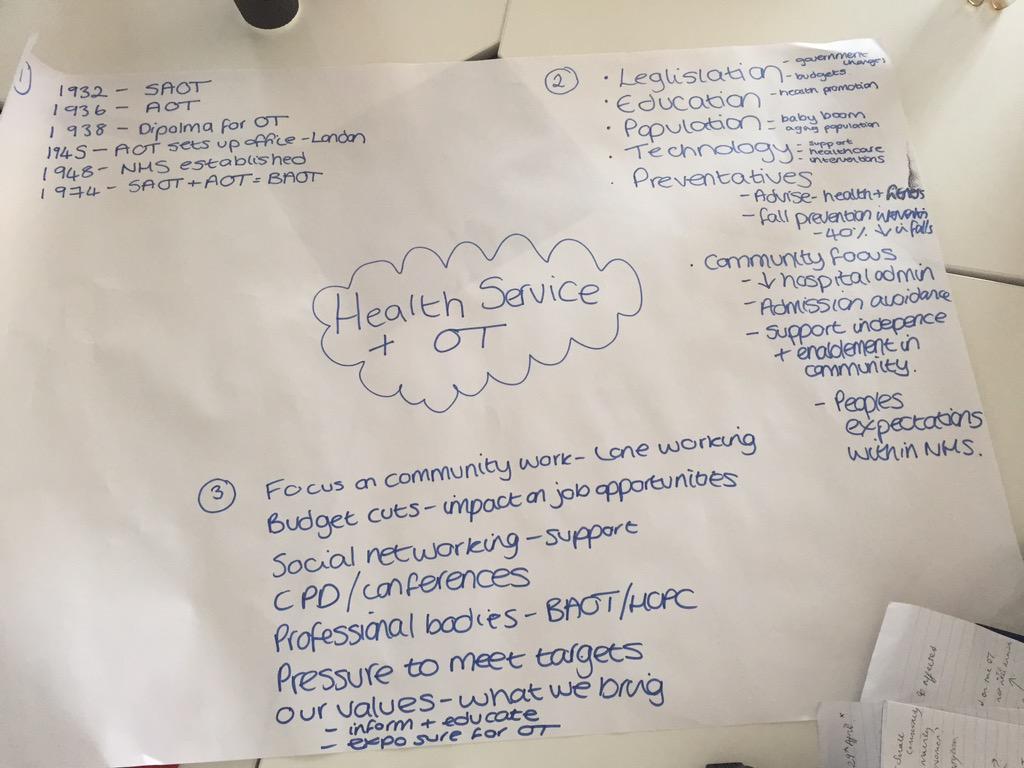 1)
1932 - SAOT
1936 - AOT
1938 - Dipolma for OT
1945 - AOT sets up office - London
1948 - NHS established
1974 - SAOT + AOT = BAOT
2
· Leglislation - government changes
- budgets
· Education - health promotion
· Population - baby boom
aging population
· Technology - support
- healthcare
- interventions
· Preventatives
- Advise - health +
- fall prevention
- 40% ↓ in falls
· Community focus
- ↓ hospital admin
- Admission avoidance
- Support indepence
+ enablement in
community.
- Peoples
expectations
within NHS.
Health Service
+ OT
3
Focus on community work - Lone working
Budget cuts - impact on job opportunities
Social networking - support
CPD/conferences
Professional bodies - BAOT/HCPC
Pressure to meet targets
our values - what we bring
- inform + educate
- exposure for OT